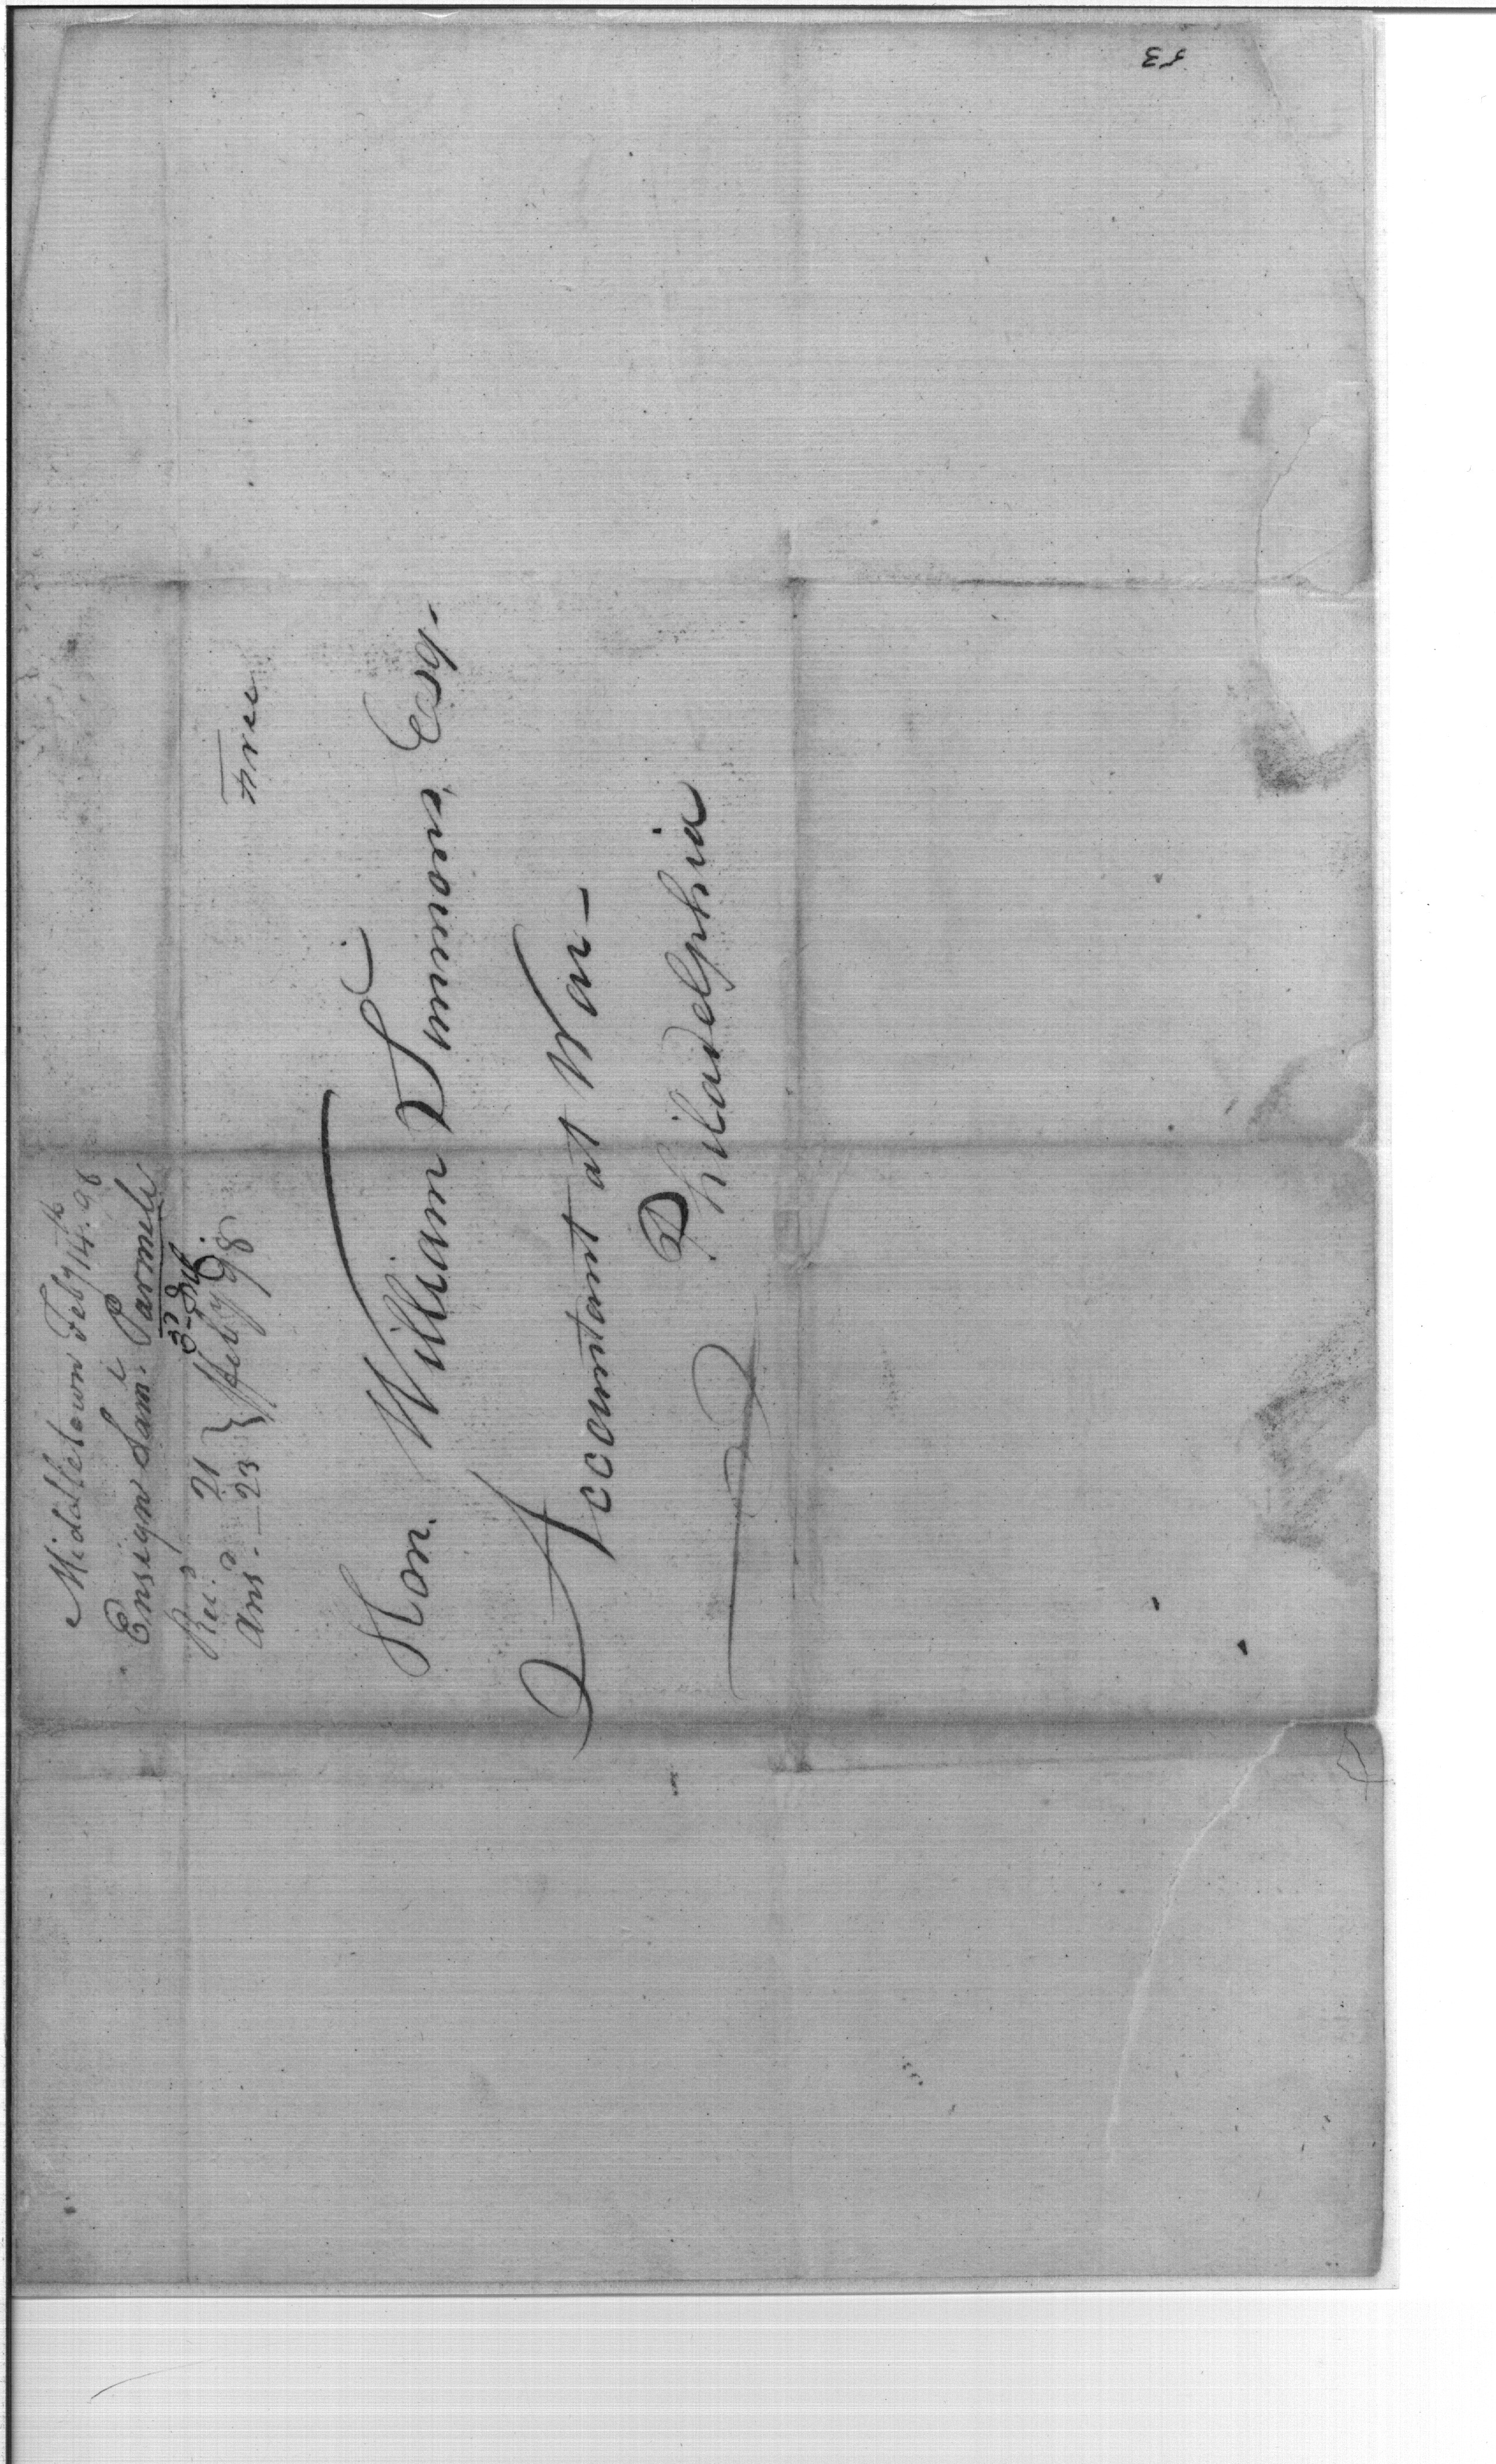 Middletown Feby 14th 98
Ensign Saml. Parmele
Recd. 21 } Feby 98.
Ans. 23
Free
Hon. William Simmons Esq.
Accountant at War –
Philadelphia
53